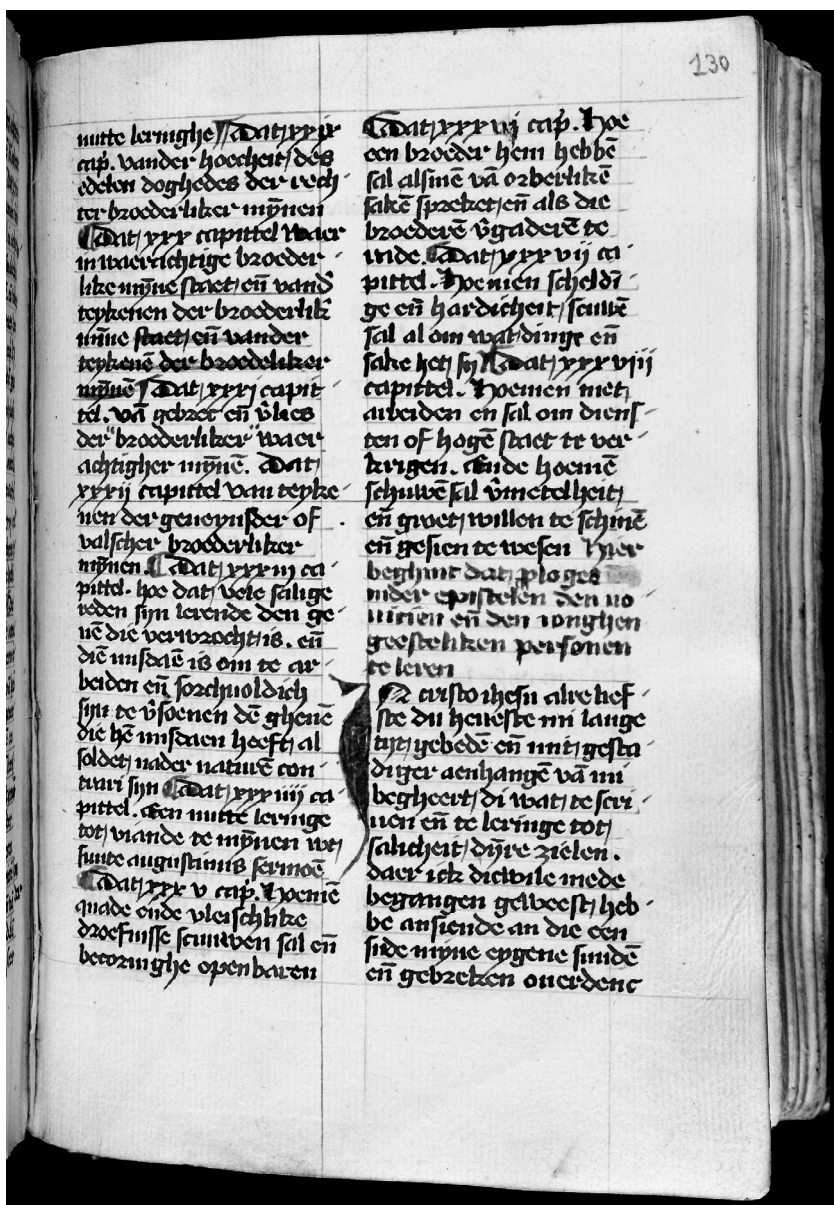 130
nutte leringhe Dat xxix
cap̄. vander hoecheit des
edelen doghedes der rech
ter broederliker mȳnen
Dat xxx capittel waer
in waerachtige broeder
like mȳne staet en̄ vand̄
teykenen der broederlik̄
mȳne staet en̄ vander
teykenē der broedeliker
mȳnē Dat xxxj capit
tel. vā gebrec en̄ v̄lies
der broederliker waer
achtigher mȳnē. Dat
xxxij capittel van teyke
nen der geueynsder of
valscher broederliker
mȳnen. Dat xxxiij ca
pittel. hoe dat vele salige
reden syn lerende den ge
nē die verwrocht is. en̄
diē misdaē is om te ar
beiden en̄ sorchuoldich
syn te v̄soenen dē ghenē
die hē misdaen heeft al
soldet nader naturē con
trari syn Dat xxxiiij ca
pittel. Een nutte leringe
tot viande te mȳnen wt
sunte augustinus sermoē
Dat xxx v cap̄. Hoemē
quade ende vleischlike
droefnisse scuwen sal en̄
becoringhe openbaren
Dat xxx vj cap̄. Hoe
een broeder hem hebbē
sal alsmē vā orberlikē
sakē spreket en̄ als die
broederē v̄gaderē te
rade. Dat xxx vij ca
pittel. Hoemen scheldī
ge en̄ hardicheit scuwē
sal al om wat dinge en̄
sake het sy Dat xxx viij
capittel. Hoemen niet
arbeiden en sal om diens
ten of hogē staet te ver
krigen. Ende hoemē
schuwē sal v̄metelheit
en̄ groet willen te schinē
en̄ gesien te wesen Hier
beghint dat ploges
inder epistelen den no
uicien en̄ den ionghen
geesteliken personen
te leren
IN cristo ihesu alre lief
ste du heueste mi lange
tyt gebedē en̄ mit gesta
diger aenhangē vā mi
begheert di wat te scri
uen en̄ te leringe tot
salicheit dȳre zielen.
daer ick dicwile mede
begangen geweest heb
be ansiende an die een
side myne eygene sundē
en̄ gebreken ouerdenc